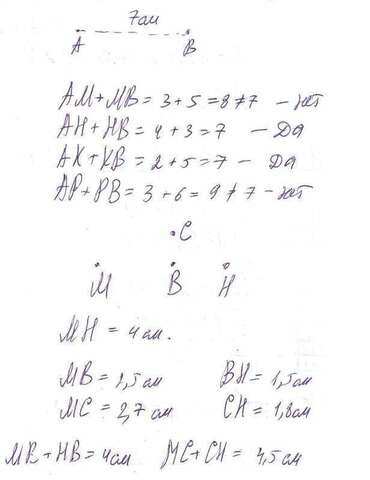 7см
A B
AM+MB = 3+5 = 8≠7 – нет
AH+HB = 4+3 = 7 – Да
AK+KB = 2+5 = 7 – Да
AP+PB = 3+6 = 9≠7 – нет
C
M B H
MH = 4см.
MB = 2,5см BH = 1,5см
MC = 2,7см CH = 1,8см
MB+HB = 4см MC+CH = 4,5см